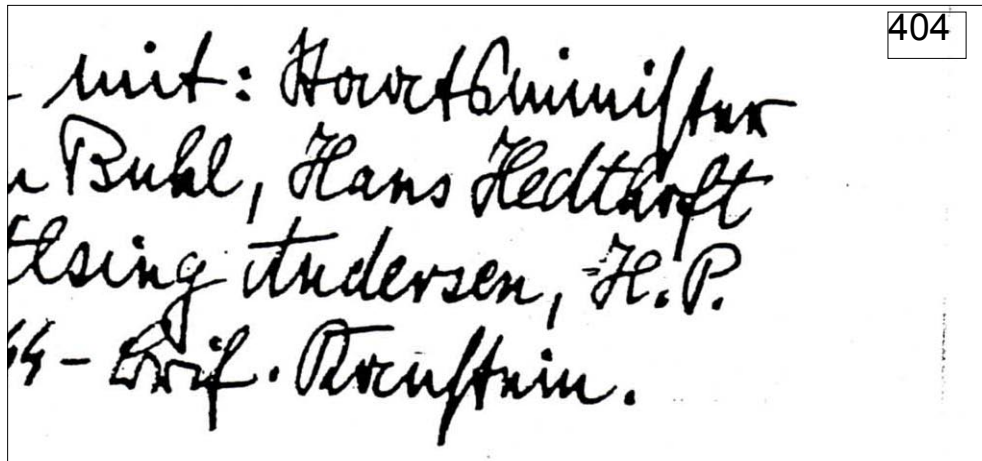 404
- mit: Staatsminister
n Buhl, Hans Hedthoft
Alsing Andersen, H.P.
44 - Brif. Kanstein.